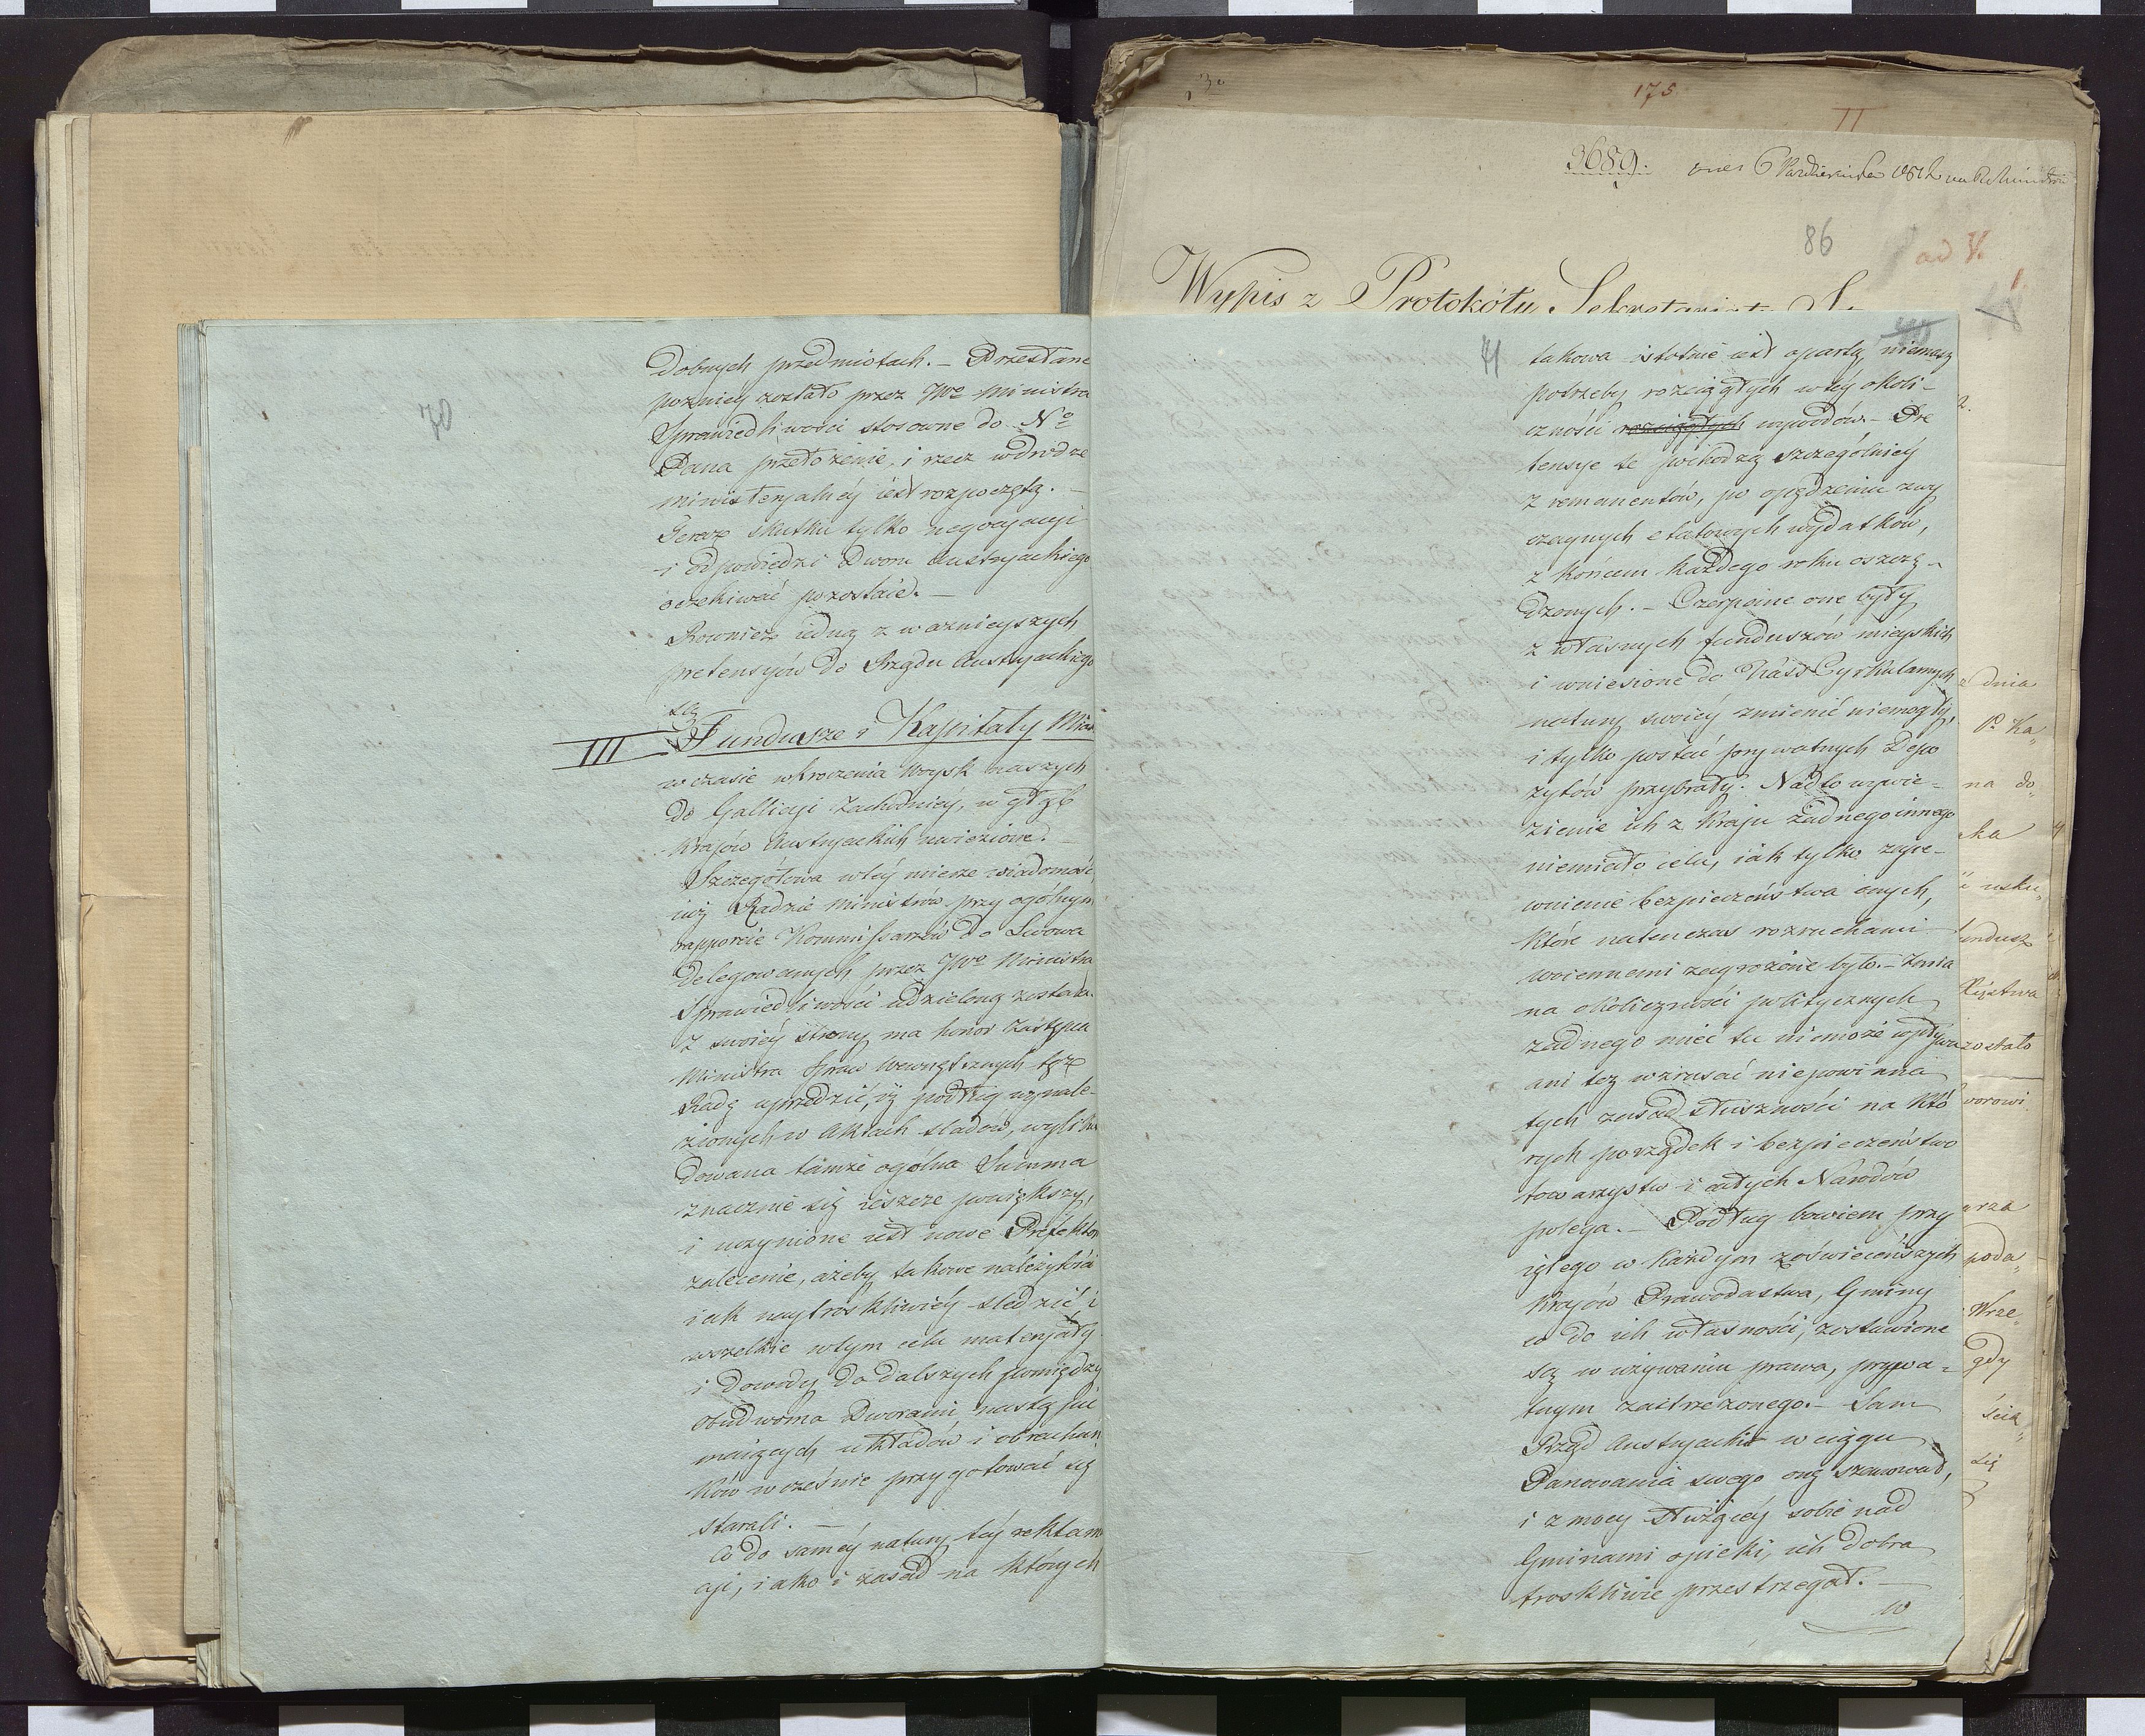 70
dobnych przedmiotach. – Przesłane
pozniey zostało przez JWo Ministra
Sprawiedliwości stosowne do No
Pana przełożenie, i rzecz wdrodze
ministeryalnéy iest rozpoczętą. –
Teraz skutku tylko negocyacyi
i odpowiedzi Dworu Austryackiego
oczekiwać pozostaie. –
Rownież iedną z waznieyszych
pretensyów do Rządu Austryackiego
są
III Fundusze i Kapitały Miast
w czasie wkroczenia Woysk naszych
do Gallicyi Zachodniéy, w głąb
Kraiów Austryackich uwiezione. –
Szczegółowa wtéy mierze wiadomość,
iuż Radzie Ministrów przy ogólnym
rapporcie Kommissarzów do Lwowa
delegowanych przez JWo Ministra
Sprawiedliwości udzieloną została.
Z swoiéy strony ma honor Zastępca
Ministra Spraw Wewnętrznych tęż
Radę uprzedzić, iż podług wynale-
zionych w Aktach sladów, wylikwi
dowana tamże ogólna Summa
znacznie się ieszcze powiększy,
i uczynione iest nowe Prefektom
zalecenie, ażeby takowe należytości
iak naytroskliwiéy sledzić, i
wszelkie wtym celu materyały
i dowody do dalszych pomiędzy
obudwoma Dworami nastąpić
maiących układów i obrachun
ków wcześnie przygotować się
starali. –
Co do saméy natury téy reklam
acyi, iako i zasad na których
3689.
175
II
86
ad V.
Wypis z Protokółu Sekretariatu
71
takowa istotnie iest opartą, niemasz
potrzeby rozciągłych wtéy okoli-
czności rozciągłych wywodów. – Pre
tensye te pochodzą szczególniey
z remanentów, po opędzeniu zwy
czaynych etatowych wydatków,
z końcem każdego roku oszczę-
dzonych. – Czerpane one były
z własnych funduszów mieyskich
i wniesione do Kass Cyrkularnych
natury swoiéy zmienić niemogły,
i tylko postać prywatnych Depo
zytów przybrały. Nadto wywie-
zienie ich z Kraju żadnego innego
niemiało celu, iak tylko zape-
wnienie bezpieczeństwa onych,
które natenczas rozruchami
woiennemi zagrożone było. – Zmia
na okoliczności politycznych
żadnego mieć tu niemoże wpływu
ani też wzrusać niepowinna
tych zasad słuszności na któ
rych porządek i bezpieczeństwo
towarzystw i całych Narodów
polega. – Podług bowiem przy
iętego w każdym z oświeceńszych
Kraiów Prawodastwa, Gminy
co do ich własności, zostawione
są w używaniu prawa, prywa-
tnym zastrzeżonego. – Sam
Rząd Austryacki w ciągu
Panowania swego one szanował,
i z mocy służącéy sobie nad
Gminami opieki, ich dobra
troskliwie przestrzegał. –
w
z dnia
na do„
fundusz
zostało
poda„
Wrze„
gdy
się